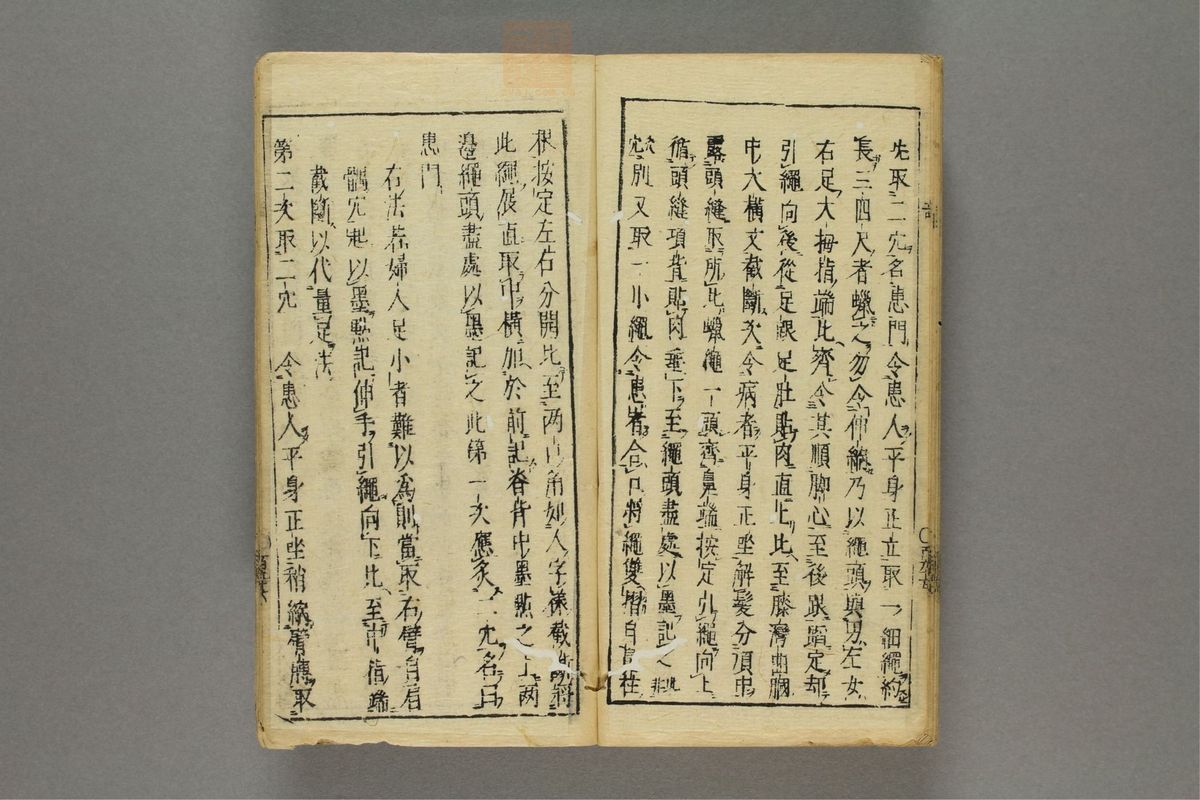 先取二穴名患門令患人平身正立取一細繩約
長三四尺者蠟之勿令伸縮乃以繩頭與男左女
右足大拇指端比齊令其順脚心至後跟踏定却
引繩向後從足跟足肚貼肉直上比至膝灣曲䐐
中大橫文截斷次令病者平身正坐解髮分頂中
露頭縫取所比蠟繩一頭齊鼻端按定引繩向上
循頭縫項背貼肉垂下至繩頭盡處以墨記之此非
灸穴別又取一小繩令患者合口將繩雙摺自鼻柱
根按定左右分開比至兩口角如人字樣截斷將
此繩展直取中橫加於前記脊背中墨點之上兩
邊繩頭盡處以墨記之此第一次應灸二穴名曰
患門
右法若婦人足小者難以為則當取右臂自肩
髃穴起以墨點記伸手引繩向下比至中指端
截斷以代量足法
第二次取二穴 令患人平身正坐稍縮臂膊取